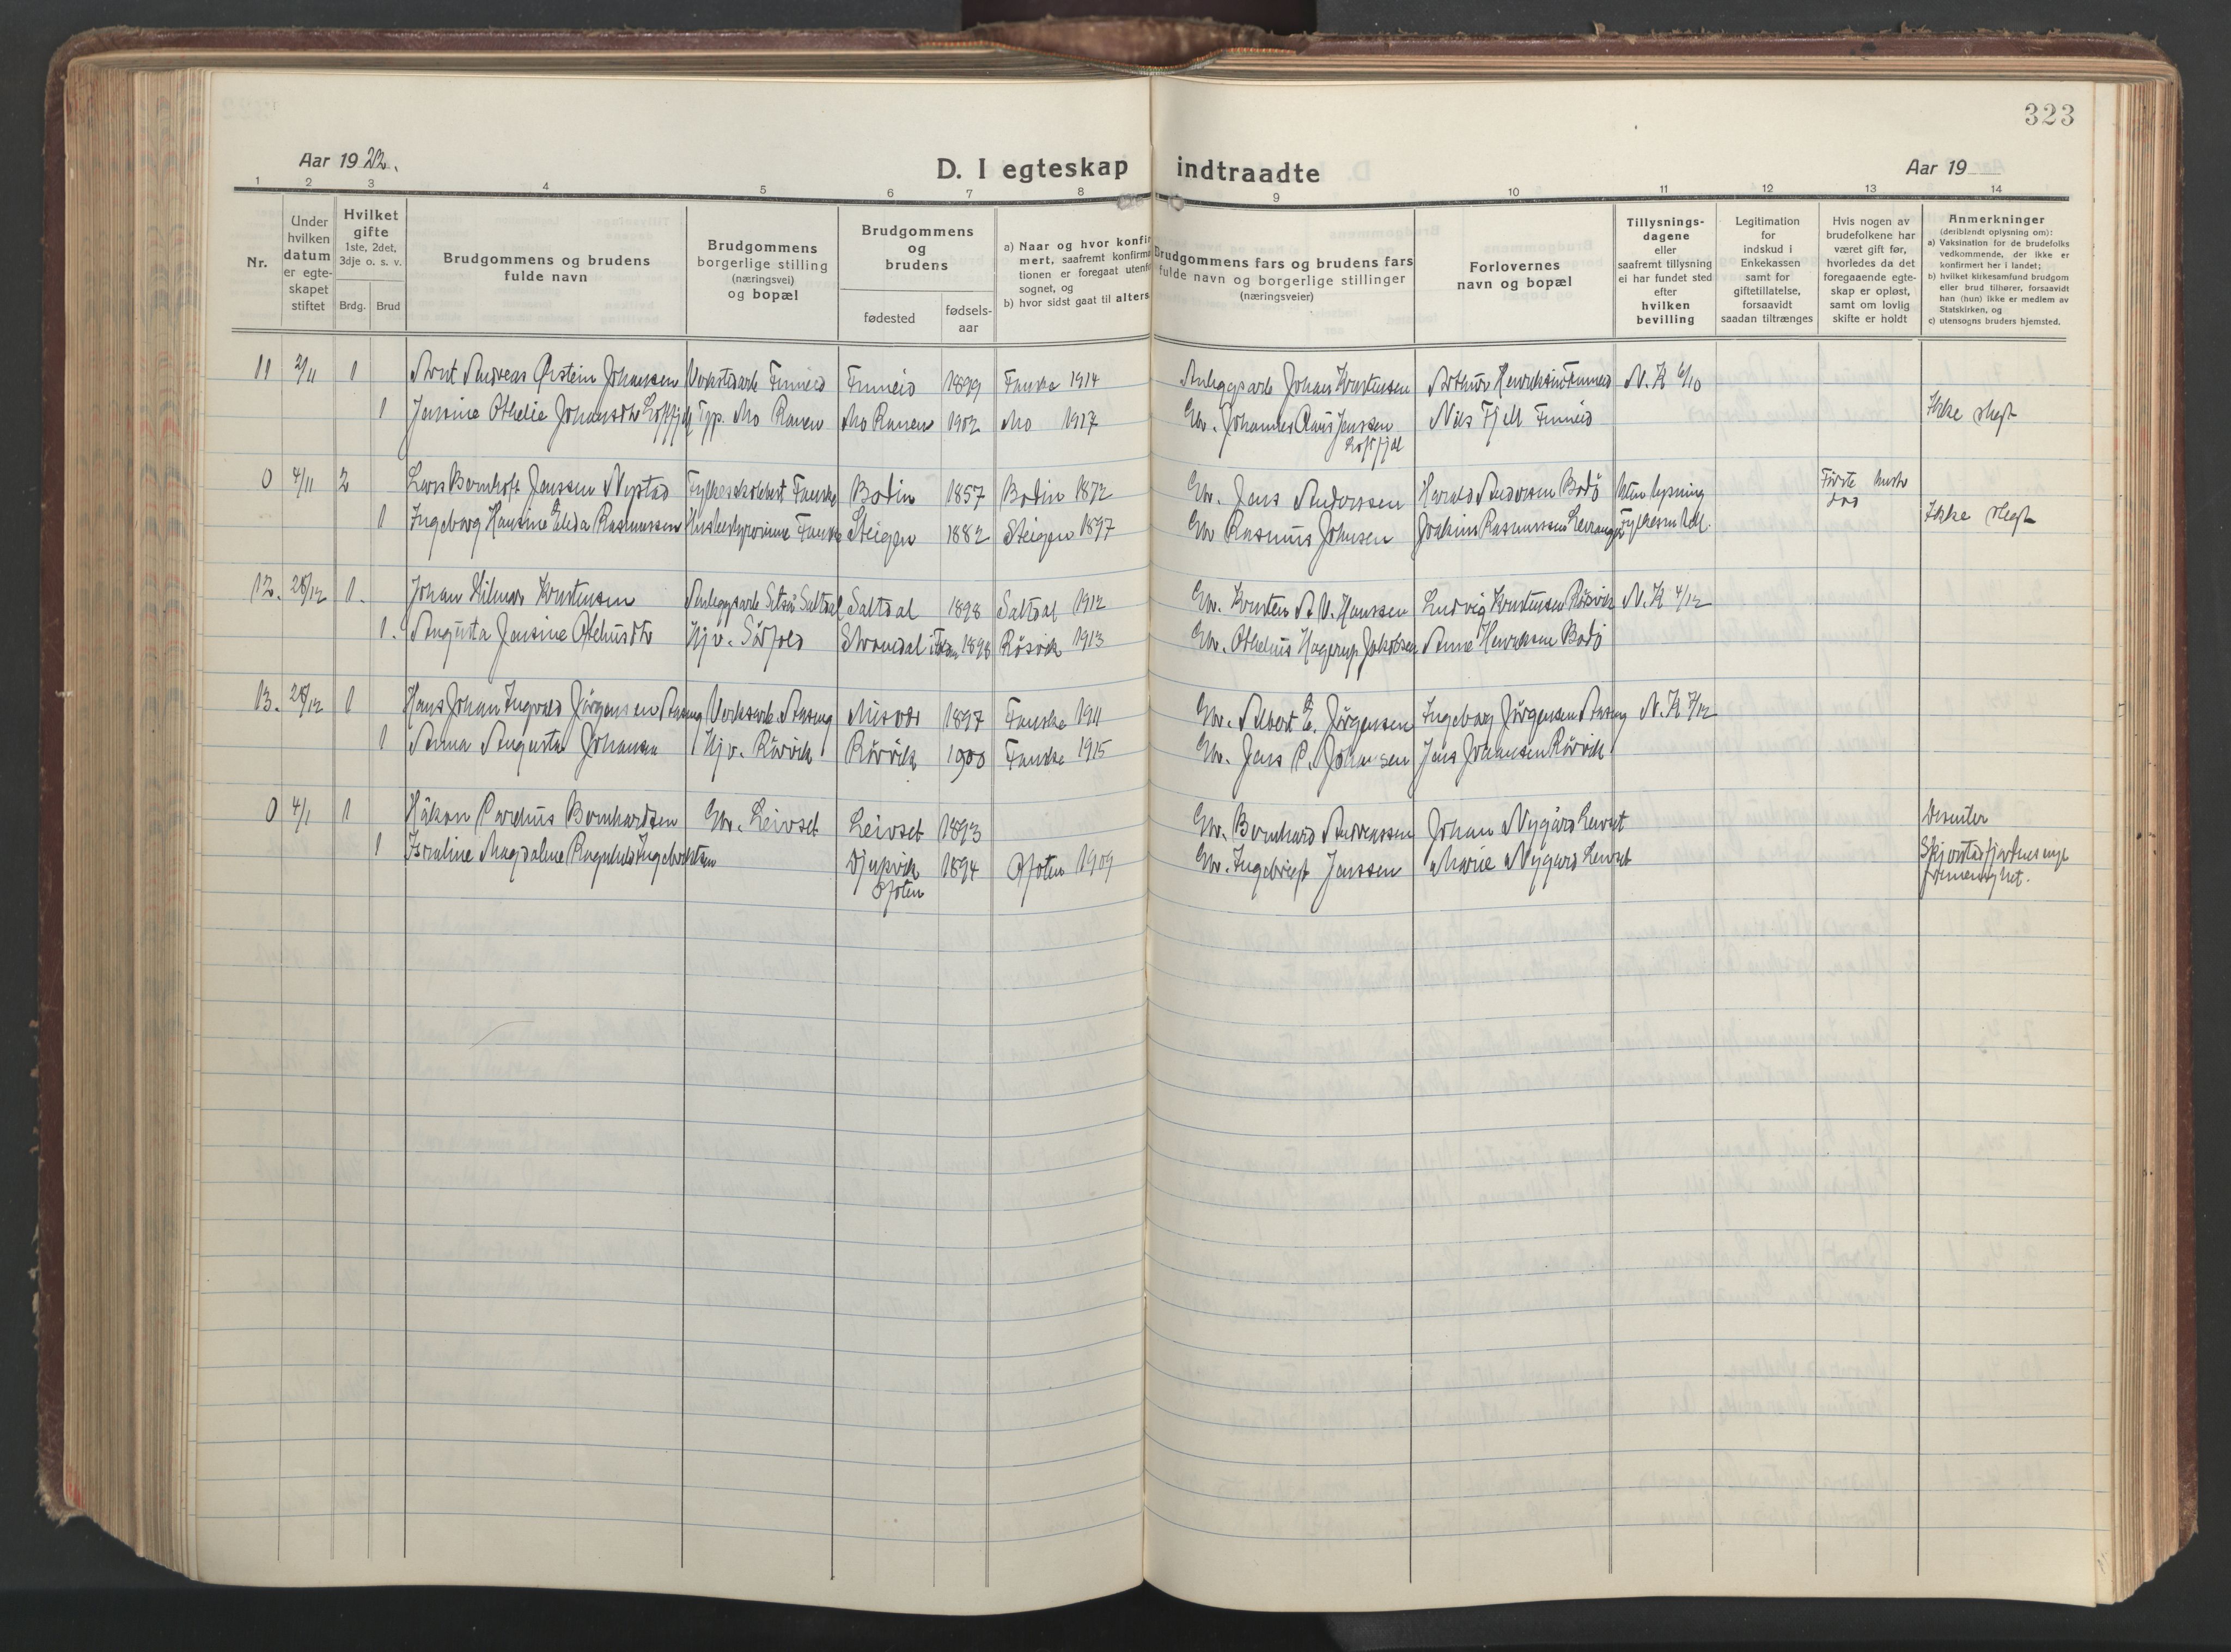 323
Aar 1922.
D. I egteskap indtraadte
Aar 19
1 2 3 4 5 6 7 8 9 10 11 12 13 14
Nr.
Under hvilken datum er egteskapet stiftet
Hvilket gifte 1ste, 2det, 3dje o. s. v.
Brdg. Brud
Brudgommens og brudens fulde navn
Brudgommens borgerlige stilling (næringsvei) og bopæl
Brudgommens og brudens
fødested
fødsels-aar
a) Naar og hvor konfir
mert, saafremt konfirma
tionen er foregaat utenf
sognet, og
b) hvor sidst gaat til alters
Brudgommens fars og brudens fars
fulde navn og borgerlige stillinger
(næringsveier)
Forlovernes navn og bopæl
Tillysnings-dagene eller saafremt tillysning ei har fundet sted efter hvilken bevilling
Legitimation for indskud i Enkekassen samt for giftetillatelse, forsaavidt saadan tiltrænges
Hvis nogen av brudefolkene har været gift før, hvorledes da det foregaaende egte-skap er opløst, samt om lovlig skifte er holdt
Anmerkninger
(deriblandt oplysning om):
a) Vaksination for de brudefolks vedkommende, der ikke er konfirmert her i landet;
b) hvilket kirkesamfund brudgom eller brud tilhører, forsaavidt han (hun) ikke er medlem av Statskirken, og
c) utensogns bruders hjemsted.
11 2/11 1 Arnt Andreas Østein Johansen Verkstedarb Finneid Finneid 1899 Fauske 1914 Anleggsarb Johan Kristensen Arthur Henriksen Finneid N. K 6/10
1 Jensine Othelie Johansdtr Loftfjell Typ. Mo Ranen Mo Ranen 1902 Mo 1917 Gbr. Johannes Claus Jenssen Nils Fjell Finneid Ikke slegt
Loftfjell
0 4/11 2 Lars Bernhoft Jenssen Nystad Fylkesskolebest Fauske Bodin 1857 Bodin 1872 Gbr. Jens Anderssen Harald Andersen Bodø Uten lysning Første hustr død
1 Ingeborg Hansine Elida Rasmussen Husbestyrerinne Fauske Steigen 1882 Steigen 1897 Gbr Rasmus Johnsen Joakim Rasmussen Levanger Fylkesm till. Ikke slegt
12. 28/12 1. Johan Hilmar Kristensen Anleggsarb Setså Saltdal Saltdal 1898 Saltdal 1912 Gbr. Kristen A. V. Hanssen Ludvig Kristensen Røsvik N. K 4/12
1. Augusta Jensine Oteliusdtr Hjv. Sørfold Stordal i Folden 1898 Røsvik 1913 Gbr. Othelius Hagerup Jakobsen Arne Henriksen Bodø
13. 28/12 1 Hans Johan Ingvald Jørgensen Aaseng Verksarb. Aaseng Misvær 1897 Fauske 1911 Gbr. Albert E. Jørgensen Ingeborg Jørgensen Aaseng N. K 7/12
1 Anna Augusta Johansen Hjv. Rørvik Rørvik 1900 Fauske 1915 Gbr. Jens P. Johansen Jens Johansen Rørvik
0 4/1 1 Håkon Parelius Bernhardsen Gbr. Leivset Leivset 1893 Gbr. Bernhard Andreassen Johan Nygård Leivset Desenter
1 Israline Magdalene Ragnhild Ingebrektsen Djupvik 1894 Ofoten 1909 Gbr. Ingebrigt Jenssen Marie Nygård Leivset
Ofoten